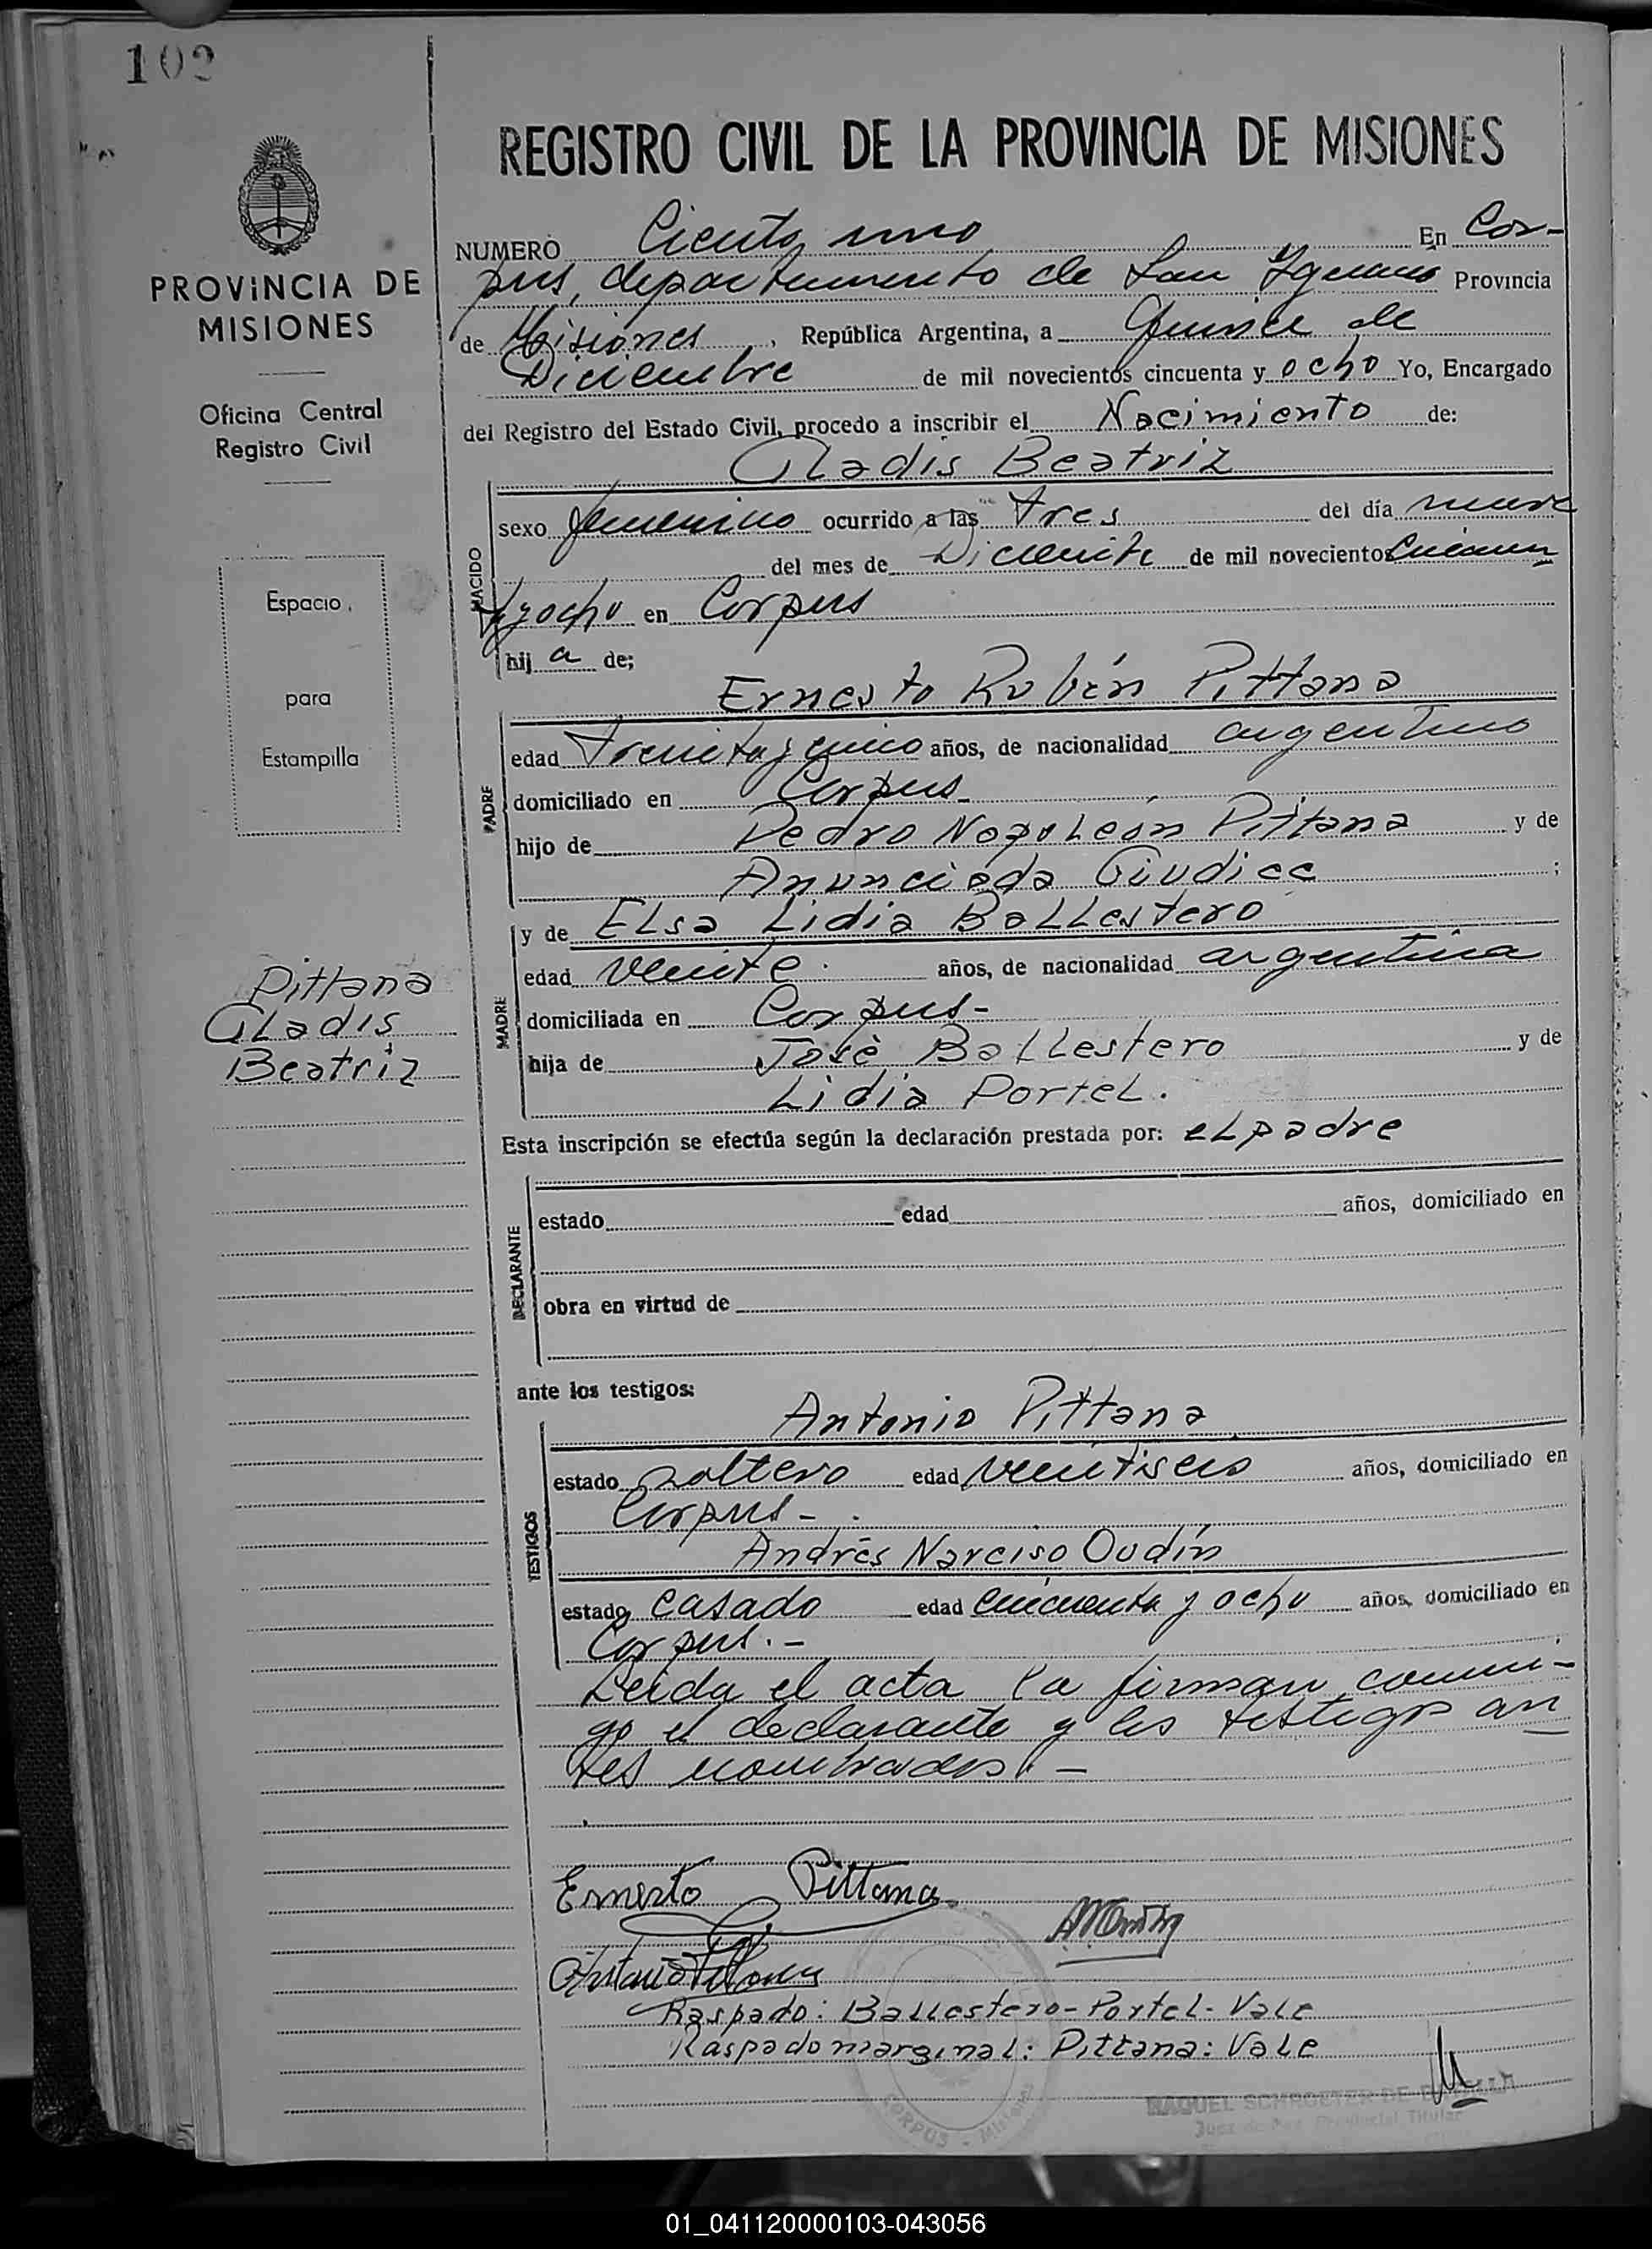 102
REGISTRO CIVIL DE LA PROVINCIA DE MISIONES
PROVINCIA DE
MISIONES
Oficina Central
Registro Civil
Espacio
para
Estampilla
Pittana
Gladis
Beatriz
NUMERO Ciento uno En Cor-
pus, departamento de San Ignacio Provincia
de Misiones, República Argentina, a Quince de
Diciembre de mil novecientos cincuenta y ocho Yo, Encargado
del Registro del Estado Civil, procedo a inscribir el Nacimiento de:
Gladis Beatriz
NACIDO
sexo femenino ocurrido a las tres del día nueve
del mes de Diciembre de mil novecientos cincuen
ta y ocho en Corpus
hij a de;
Ernesto Rubén Pittana
PADRE
edad Treinta y cinco años, de nacionalidad argentino
domiciliado en Corpus-
hijo de Pedro Napoleón Pittana y de
Anunciada Giudice ;
y de Elsa Lidia Ballestero
MADRE
edad veinte años, de nacionalidad argentina
domiciliada en Corpus-
hija de José Ballestero y de
Lidia Portel.
Esta inscripción se efectúa según la declaración prestada por: el padre
DECLARANTE
estado edad años, domiciliado en
obra en virtud de
ante los testigos:
Antonio Pittana
TESTIGOS
estado soltero edad veintiseis años, domiciliado en
Corpus-.
Andrés Narciso Oudín
estado casado edad cincuenta y ocho años, domiciliado en
Corpus.-
Leida el acta la firman conmi-
go el declarante y los testigos an
tes nombrados.-
Ernesto Pittana
Antonio Pittana
Raspado: Ballestero-Portel-Vale
Raspado marginal: Pittana: Vale
CORPUS - Misiones
RAQUEL SCHROETER DE
Juez de Paz Provincial Titular
01_041120000103-043056